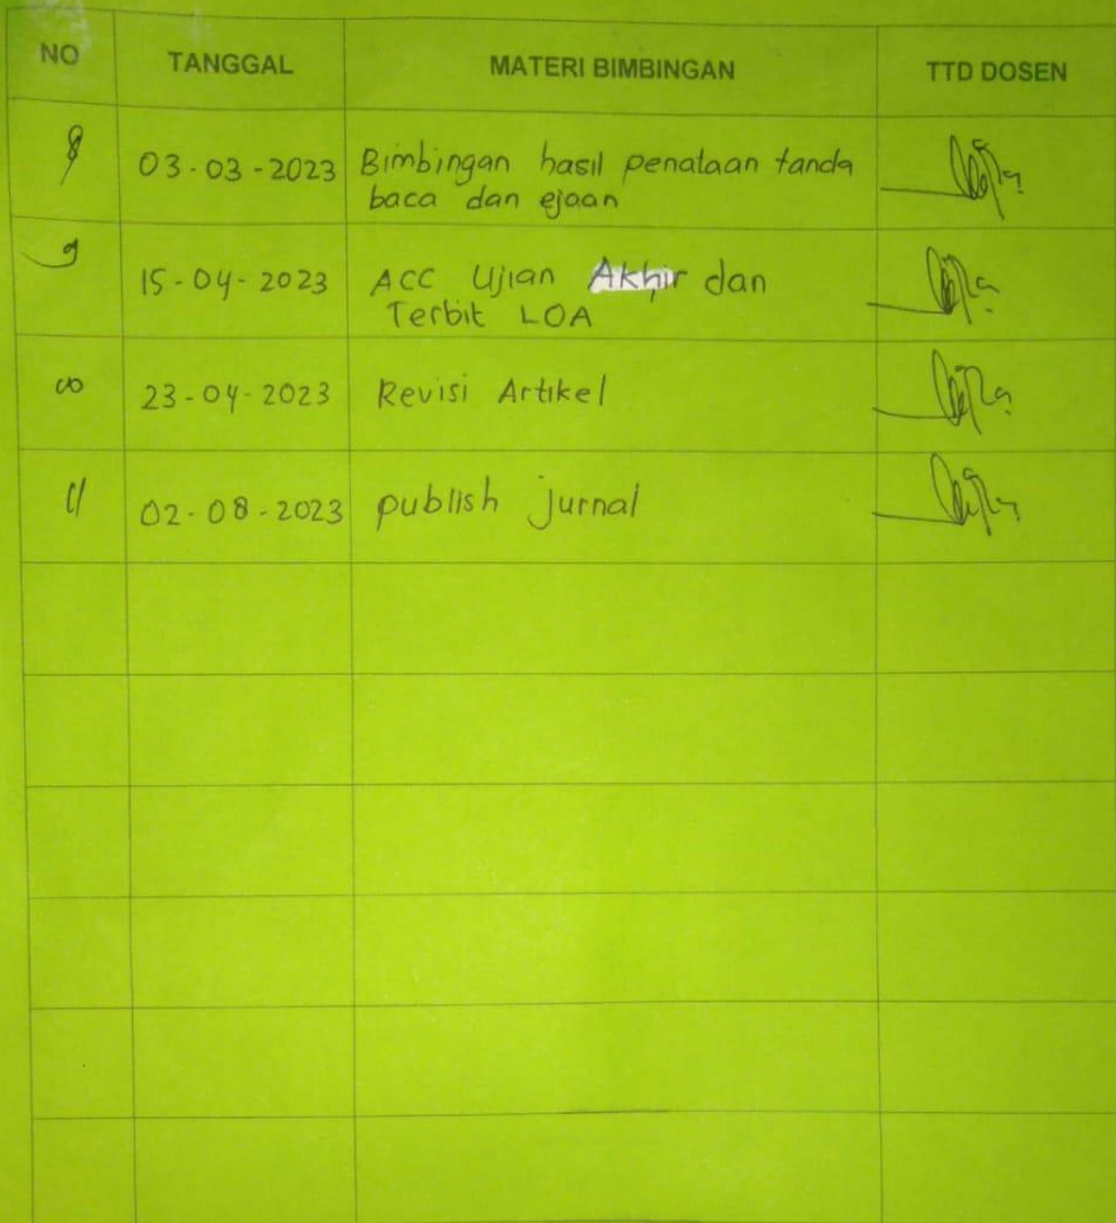 NO TANGGAL MATERI BIMBINGAN TTD DOSEN
8 03-03-2023 Bimbingan hasil penataan tanda
baca dan ejaan
9
15-04-2023 ACC Ujian Akhir dan
Terbit LOA
10 23-04-2023 Revisi Artikel
11 02-08-2023 publish jurnal